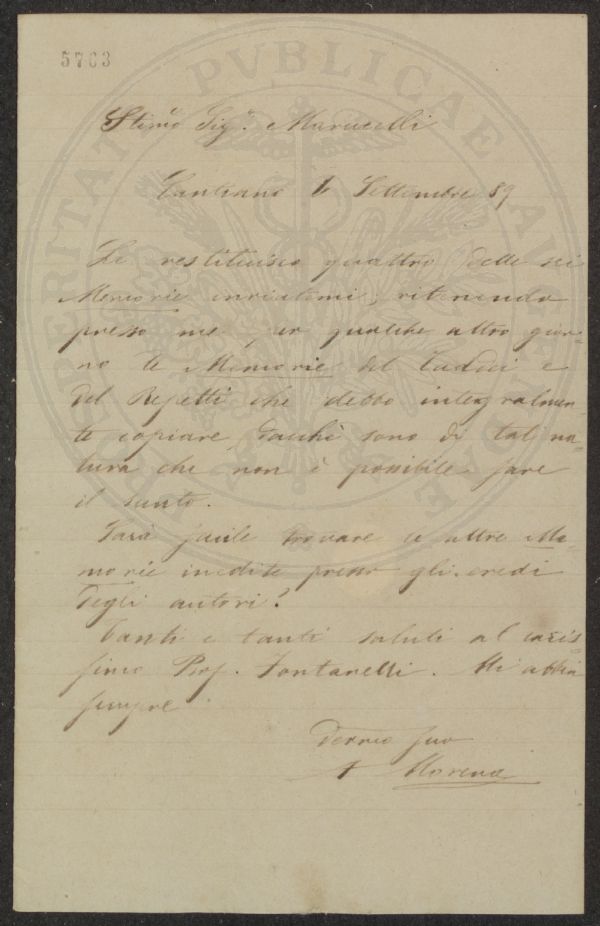 5763
Stimo Sigr. Marucelli
Cantiano 6 Settembre 89
Le restituisco quattro delle sei
Memorie inviatemi, ritenendo
presso me per qualche altro gior-
no le Memorie del Taddei e
del Repetti che debbo integralmen-
te copiare, giacchè sono di tal na-
tura che non è possibile fare
il sunto.
Sarà facile trovare le altre Me-
morie inedite presso gli eredi
degli autori?
Tanti e tanti saluti al caris
simo Prof. Fontanelli. Mi abbia
sempre
Devmo suo
A Morena